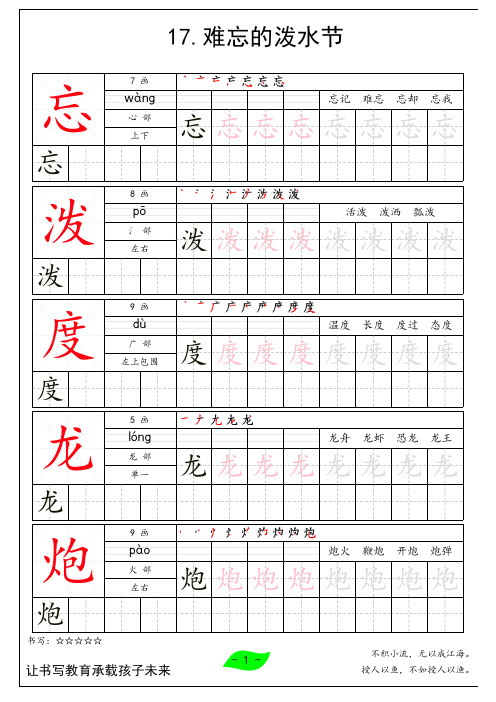 17.难忘的泼水节
忘 7 画
wàng 忘记 难忘 忘却 忘我
心 部 忘 忘 忘 忘 忘 忘 忘 忘
上下
忘
泼 8 画
pō 活泼 泼洒 瓢泼
氵 部 泼 泼 泼 泼 泼 泼 泼 泼
左右
泼
度 9 画
dù 温度 长度 度过 态度
广 部 度 度 度 度 度 度 度 度
左上包围
度
龙 5 画
lóng 龙舟 龙虾 恐龙 龙王
龙 部 龙 龙 龙 龙 龙 龙 龙 龙
单一
龙
炮 9 画
pào 炮火 鞭炮 开炮 炮弹
火 部 炮 炮 炮 炮 炮 炮 炮 炮
左右
炮
书写：☆☆☆☆☆
不积小流，无以成江海。
让书写教育承载孩子未来 - 1 - 授人以鱼，不如授人以渔。